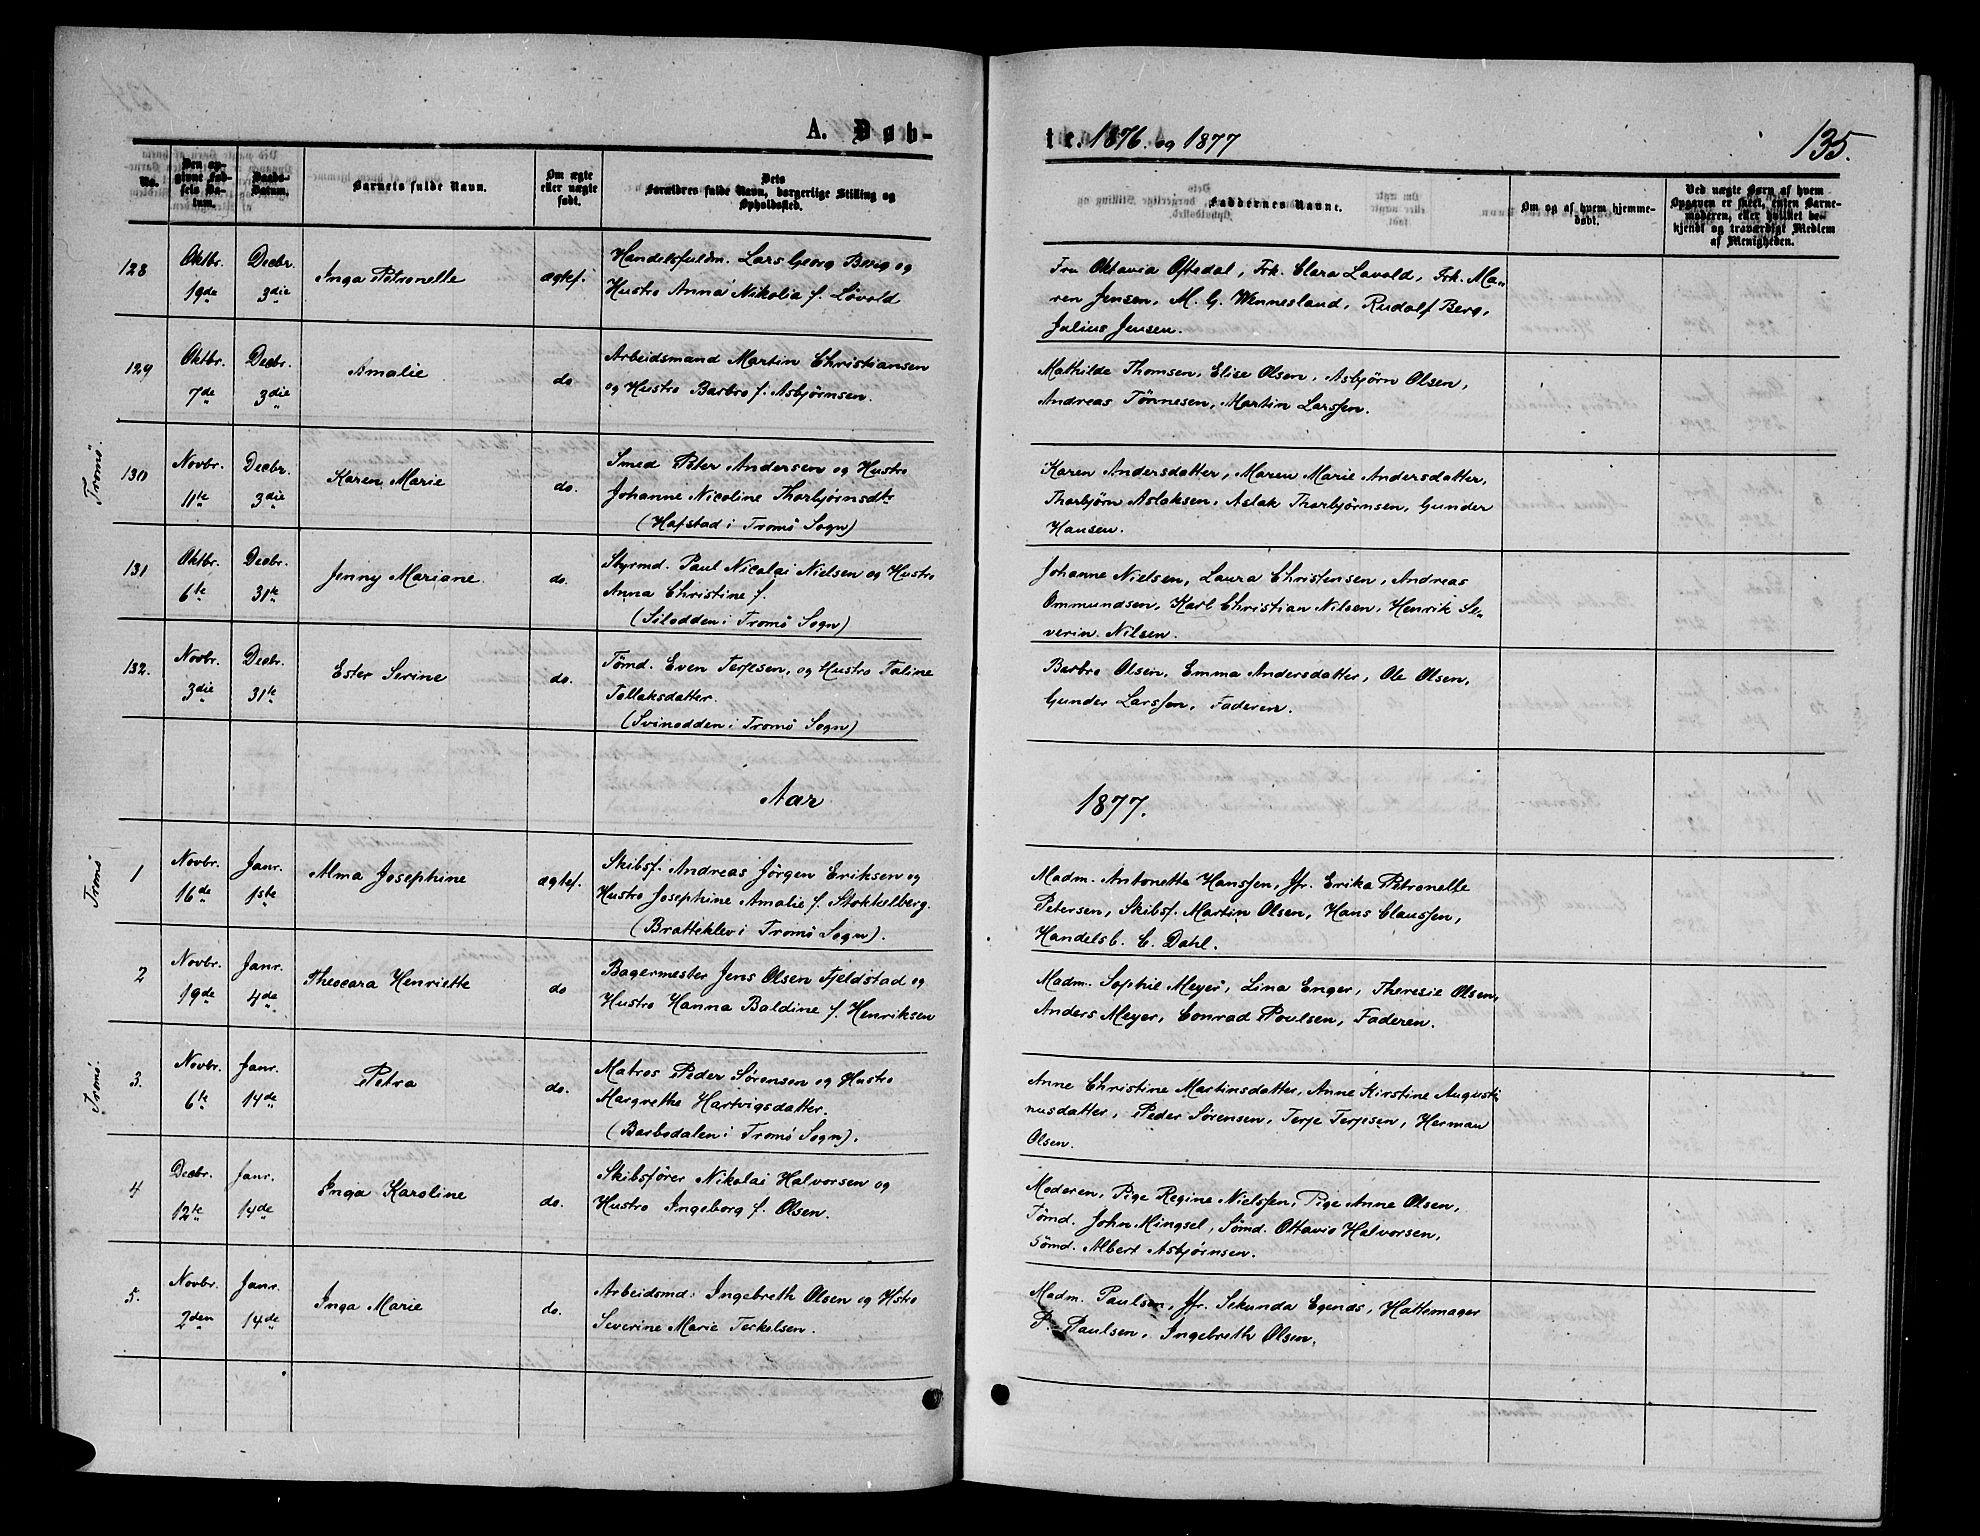 A. Døb-
te. 1876. og 1877
135.
No.
Den op-
givne Fød-
sels Da-
tum.
Daabs-
Datum.
Barnets fulde Navn.
Om ægte
eller uægte
født.
Dets
Forældres fulde Navn, borgerlige Stilling og
Opholdssted.
Faddernes Navne.
Om og af hvem hjemme-
døbt.
Ved uægte Børn af hvem
Opgaven er skeet, enten Barne-
moderen, eller hvilket be-
kjendt og troværdigt Medlem
af Menigheden.
128
Oktbr.
19de
Decbr.
3die
Inga Petronelle
ægtef.
Handelsfuldm. Lars Georg Berg og
Hustro Anna Nikolia f. Løvold
Fru Oktavia Oftedal, Frk. Clara Lovold, Frk. Ma-
ren Jensen, M. G. Wennesland, Rudolf Berg,
Julius Jensen.
129
Oktbr.
7de
Decbr.
3die
Amalie
do.
Arbeidsmand Martin Christiansen
og Hustro Barbro f. Asbjørnsen.
Mathilde Thomsen, Elise Olsen, Asbjørn Olsen,
Andreas Tønnesen, Martin Larssen.
Tromø.
130
Novbr.
11te
Decbr.
3die
Karen Marie
do.
Smed Peter Andersen og Hustro
Johanne Nicoline Thorbjørnsdtr
(Hofstad i Tromø Sogn)
Karen Andersdatter, Maren Marie Andersdatter,
Thorbjørn Aslaksen, Aslak Thorbjørnsen, Gunder
Hansen.
131
Oktbr.
6te
Decbr.
31te
Jenny Mariane.
do.
Styrmd. Paul Nicolai Nielsen og Hustro
Anna Christine f.
(Silodden i Tromø Sogn)
Johanne Nielsen, Laura Christensen, Andreas
Ommundsen, Karl Christian Nilsen, Henrik Se-
verin. Nilsen.
132.
Novbr.
3die
Decbr.
31te
Ester Serine
do.
Tømd. Even Terjesen, og Hustro Taline
Tollaksdatter.
(Svinodden i Tromø Sogn)
Barbro Olsen, Emma Andersdatter, Ole Olsen,
Gunder Larssen, Faderen.
Aar
1877.
Tromø
1
Novbr.
16de
Janr.
1ste
Alma Josephine
ægtef.
Skibsf. Andreas Jørgen Eriksen og
Hustro Josephine Amalie f. Stokkelberg.
(Bratteklev i Tromø Sogn).
Madm. Antonette Hanssen, Jfr. Erika Petronelle
Petersen, Skibsf. Martin Olsen, Hans Claussen,
Handelsb. C. Dahl.
2
Novbr.
19de
Janr.
4de
Theocara Henriette
do
Bagermester Jens Olsen Fjeldstad og
Hustro Hanna Baldine f. Henriksen
Madm. Sophie Meyer, Lina Enger, Theresie Olsen,
Anders Meyer, Conrad Poulsen, Faderen.
Tromø.
3.
Novbr.
6te
Janr.
14de
Petra
do.
Matros Peder Sørensen og Hustro
Margrethe Hartvigsdatter.
(Barbodalen i Tromø Sogn).
Anne Christine Martinsdatter, Anne Kirstine Augusti-
nusdatter, Peder Sørensen, Terje Terjesen, Herman
Olsen.
4
Decbr.
12te
Janr.
14de
Inga Karoline
do.
Skibsfører Nikolai Halvorsen og
Hustro Ingeborg f. Olsen.
Moderen, Pige Regine Nielssen, Pige Anne Olsen,
Tømd. John Mingsel, Sømd. Ottavio Halvorsen,
Sømd. Albert Asbjørnsen.
5.
Novbr.
2den
Janr.
14de
Inga Marie
do.
Arbeidsmd. Ingebreth Olsen og Hstro
Severine Marie Terkelsen.
Madm. Paulsen, Jfr. Sekunda Egends, Hattemager
P. Paulsen, Ingebreth Olsen.